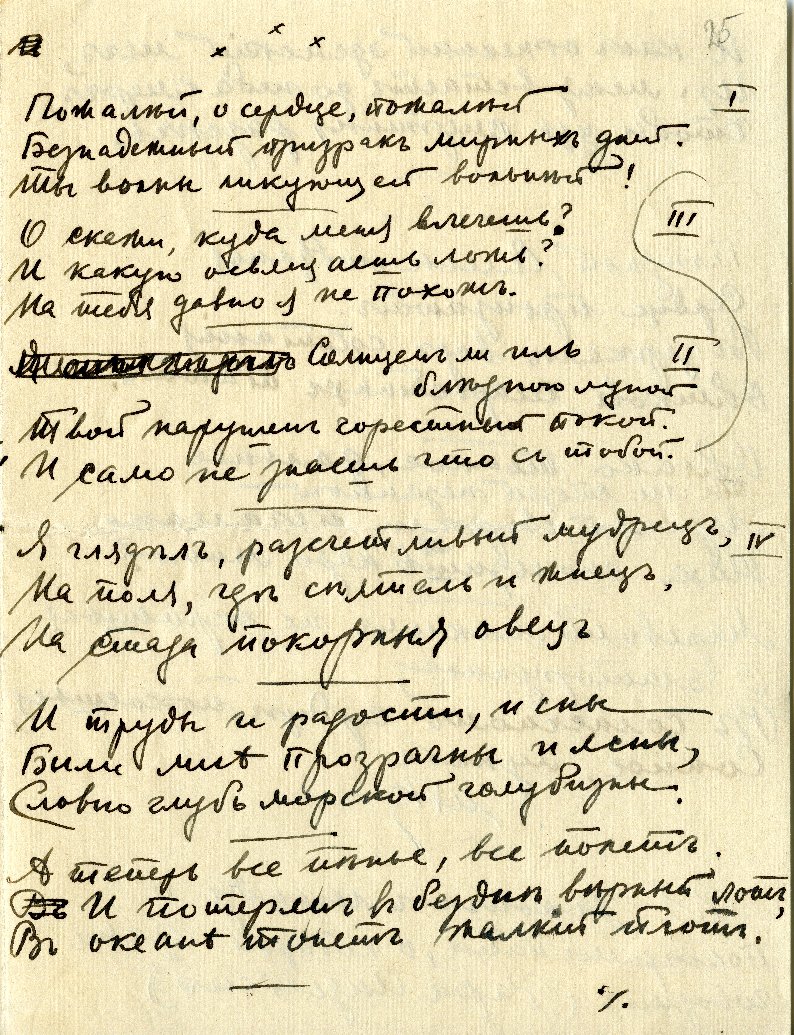 25
x x x
Пожалѣй, о сердце, пожалѣй I
Безнадежный призракъ мирныхъ дней.
Ты волны ликующей вольнѣй!
О скажи, куда меня влечешь? III
И какую освѣщаешь ложь?
На тебя давно я не похожъ.
Солнцемъ ли иль II
блѣдною луной
Твой нарушенъ горестный покой.
И само не знаешь что съ тобой.
Я глядѣлъ, разсчетливый мудрецъ, IV
На поля, гдѣ сѣятель и жнецъ,
На стада покорныя овецъ
И труды и радости, и сны
Были мнѣ прозрачны и ясны,
Словно глубь морской голубизны.
А теперь все пѣнье, все поетъ.
Въ И потерянъ в безднѣ вѣрный лотъ,
Въ океанѣ тонетъ жалкій плотъ.
·/.